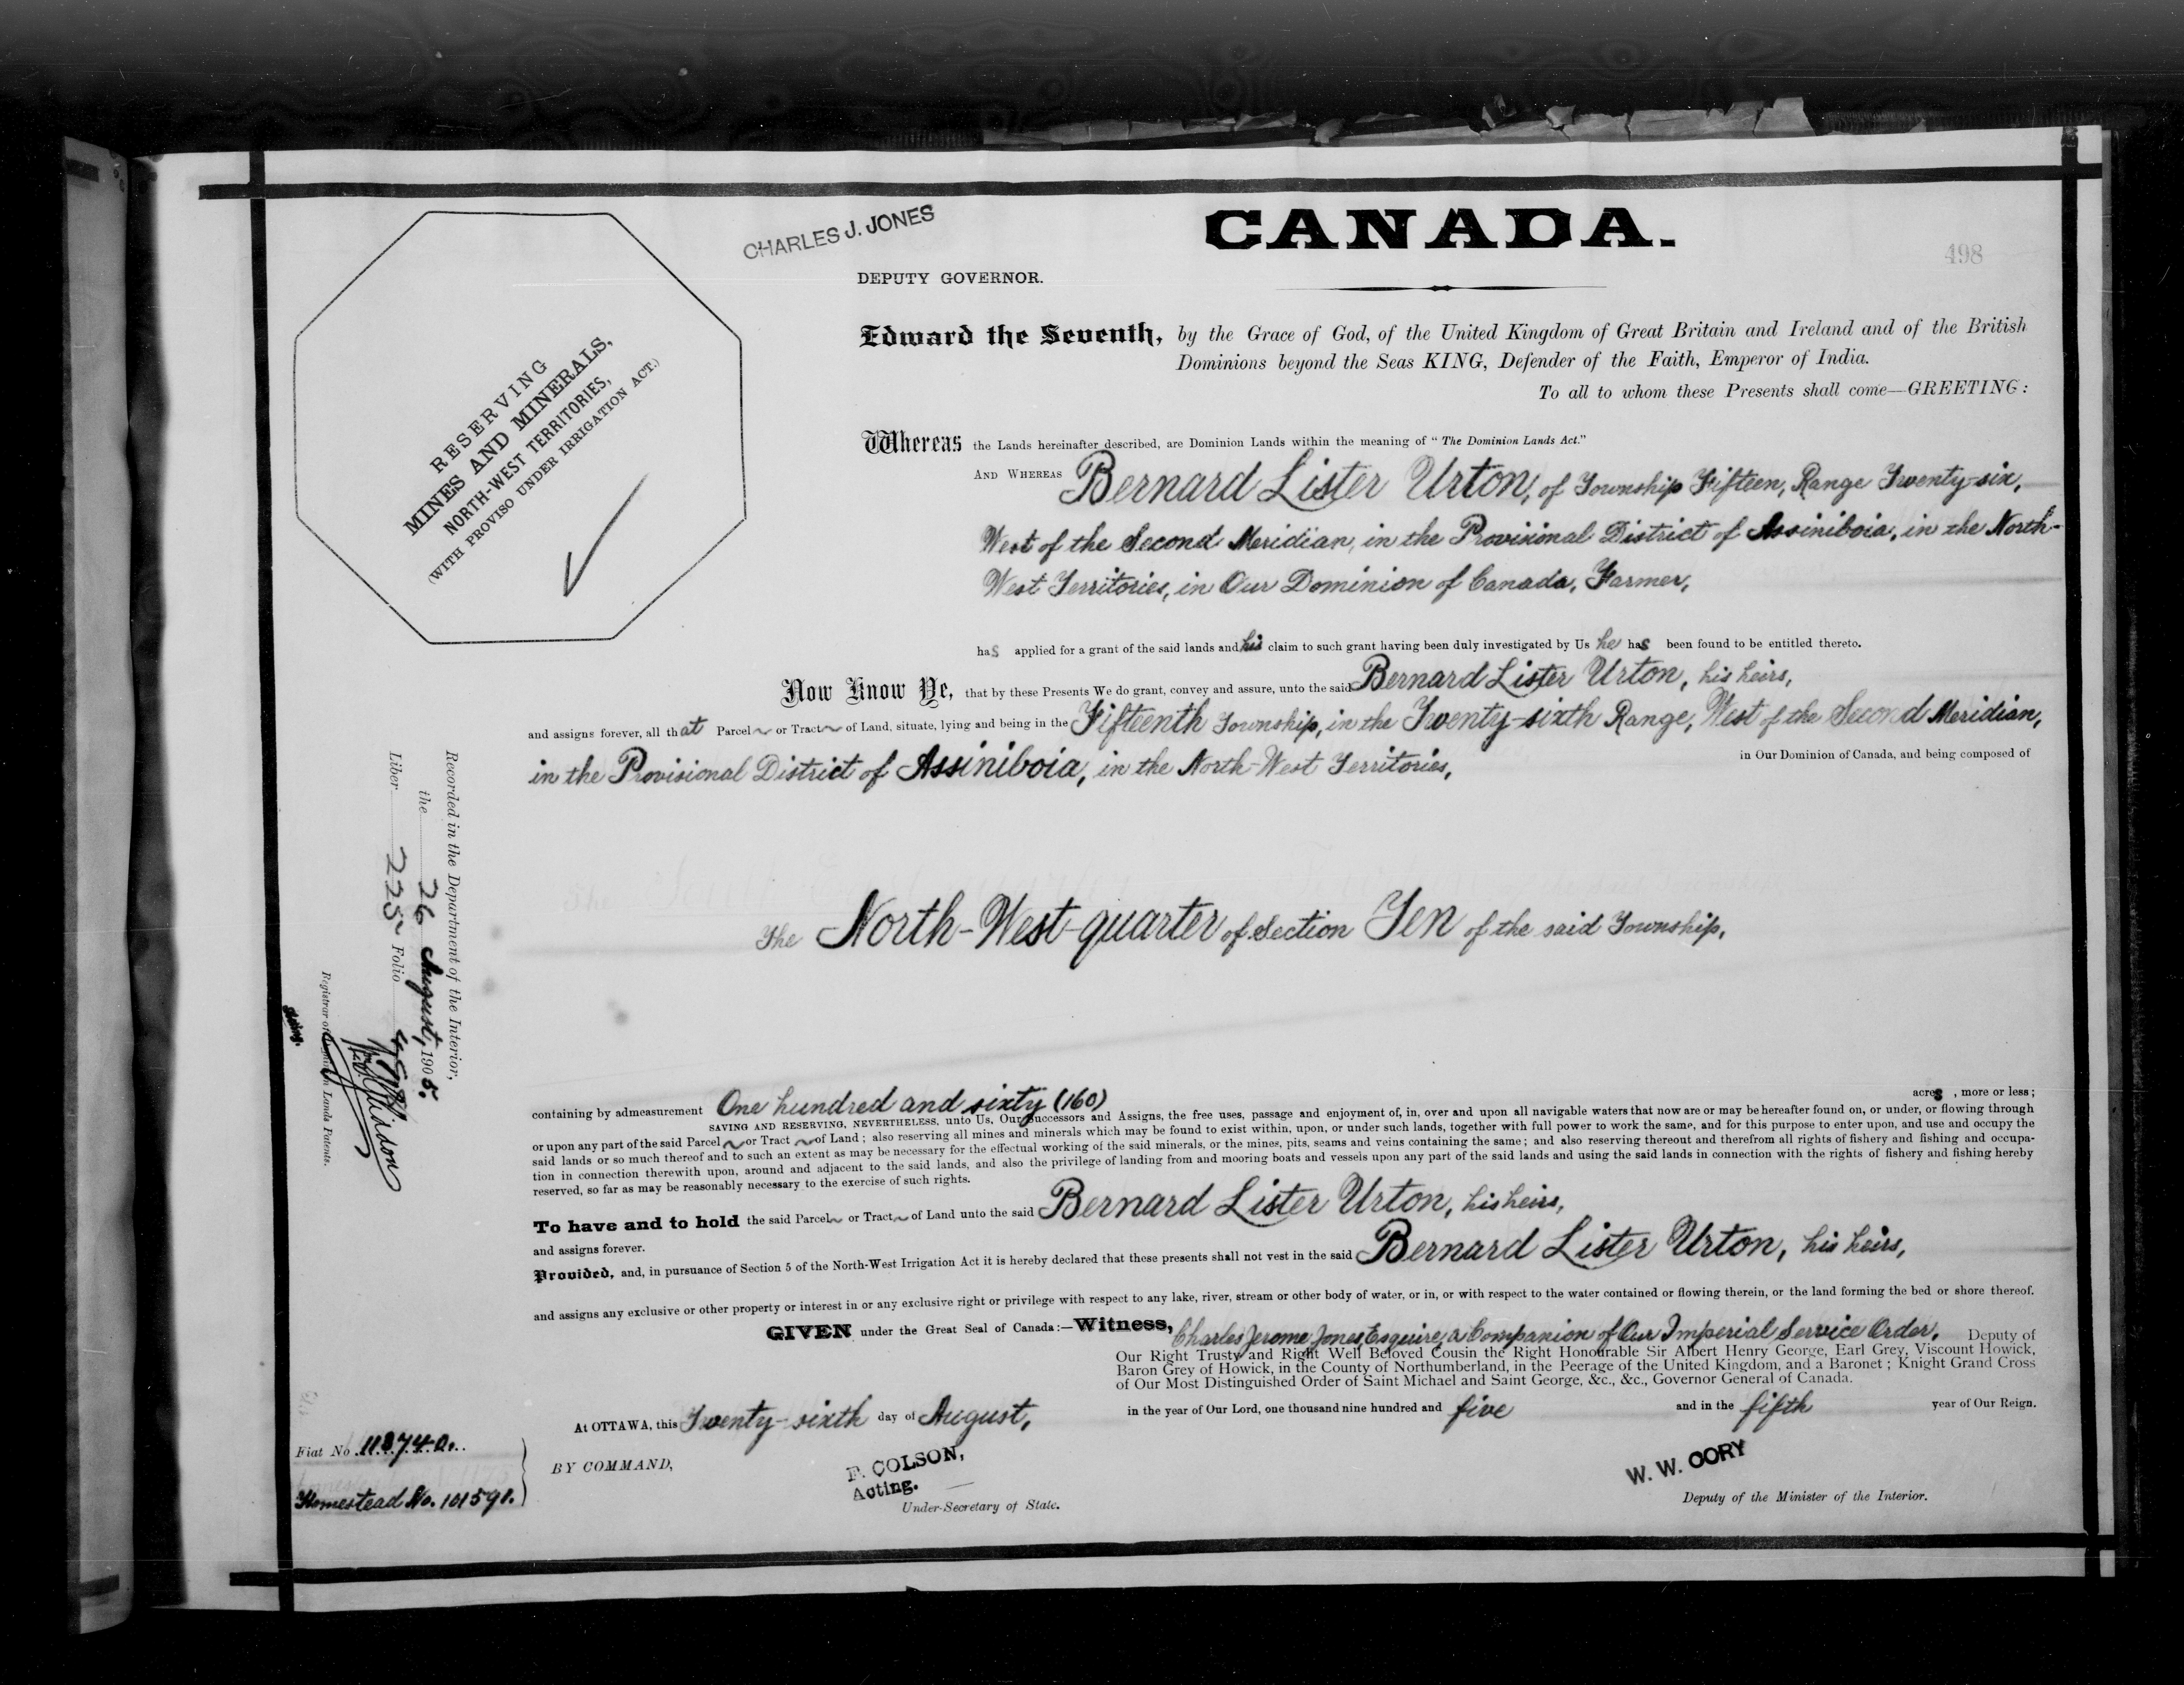 CHARLES J. JONES
CANADA.
498
DEPUTY GOVERNOR.
RESERVING
MINES AND MINERALS,
NORTH-WEST TERRITORIES,
(WITH PROVISO UNDER IRRIGATION ACT.)
Edward the Seventh, by the Grace of God, of the United Kingdom of Great Britain and Ireland and of the British
Dominions beyond the Seas KING, Defender of the Faith, Emperor of India.
To all to whom these Presents shall come—GREETING:
Whereas the Lands hereinafter described, are Dominion Lands within the meaning of “The Dominion Lands Act.”
AND WHEREAS Bernard Lister Urton, of Township Fifteen, Range Twenty-six,
West of the Second Meridian, in the Provisional District of Assiniboia, in the North-
West Territories, in Our Dominion of Canada, Farmer,
has applied for a grant of the said lands and his claim to such grant having been duly investigated by Us he has been found to be entitled thereto.
Now Know Ye, that by these Presents We do grant, convey and assure, unto the said Bernard Lister Urton, his heirs,
and assigns forever, all that Parcel or Tract of Land, situate, lying and being in the Fifteenth Township, in the Twenty-sixth Range, West of the Second Meridian,
in the Provisional District of Assiniboia, in the North-West Territories, in Our Dominion of Canada, and being composed of
The North-West-quarter of Section Ten of the said Township,
Recorded in the Department of the Interior,
the 26 August, 1905.
Liber 225 Folio
Registrar of Dominion Lands Patents.
Acting.
containing by admeasurement One hundred and sixty (160) acres, more or less;
SAVING AND RESERVING, NEVERTHELESS, unto Us, Our Successors and Assigns, the free uses, passage and enjoyment of, in, over and upon all navigable waters that now are or may be hereafter found on, or under, or flowing through
or upon any part of the said Parcel or Tract of Land; also reserving all mines and minerals which may be found to exist within, upon, or under such lands, together with full power to work the same, and for this purpose to enter upon, and use and occupy the
said lands or so much thereof and to such an extent as may be necessary for the effectual working of the said minerals, or the mines, pits, seams and veins containing the same; and also reserving thereout and therefrom all rights of fishery and fishing and occupa-
tion in connection therewith upon, around and adjacent to the said lands, and also the privilege of landing from and mooring boats and vessels upon any part of the said lands and using the said lands in connection with the rights of fishery and fishing hereby
reserved, so far as may be reasonably necessary to the exercise of such rights.
To have and to hold the said Parcel or Tract of Land unto the said Bernard Lister Urton, his heirs,
and assigns forever.
Provided, and, in pursuance of Section 5 of the North-West Irrigation Act it is hereby declared that these presents shall not vest in the said Bernard Lister Urton, his heirs,
and assigns any exclusive or other property or interest in or any exclusive right or privilege with respect to any lake, river, stream or other body of water, or in, or with respect to the water contained or flowing therein, or the land forming the bed or shore thereof.
GIVEN under the Great Seal of Canada:—Witness, Charles Jerome Jones, Esquire, a Companion of Our Imperial Service Order, Deputy of
Our Right Trusty and Right Well Beloved Cousin the Right Honourable Sir Albert Henry George, Earl Grey, Viscount Howick,
Baron Grey of Howick, in the County of Northumberland, in the Peerage of the United Kingdom, and a Baronet; Knight Grand Cross
of Our Most Distinguished Order of Saint Michael and Saint George, &c., &c., Governor General of Canada.
At OTTAWA, this Twenty-sixth day of August, in the year of Our Lord, one thousand nine hundred and five and in the fifth year of Our Reign.
Fiat No. 118740.
Homestead No. 101591.
BY COMMAND,
F. COLSON,
Acting.
Under-Secretary of State.
W. W. CORY
Deputy of the Minister of the Interior.